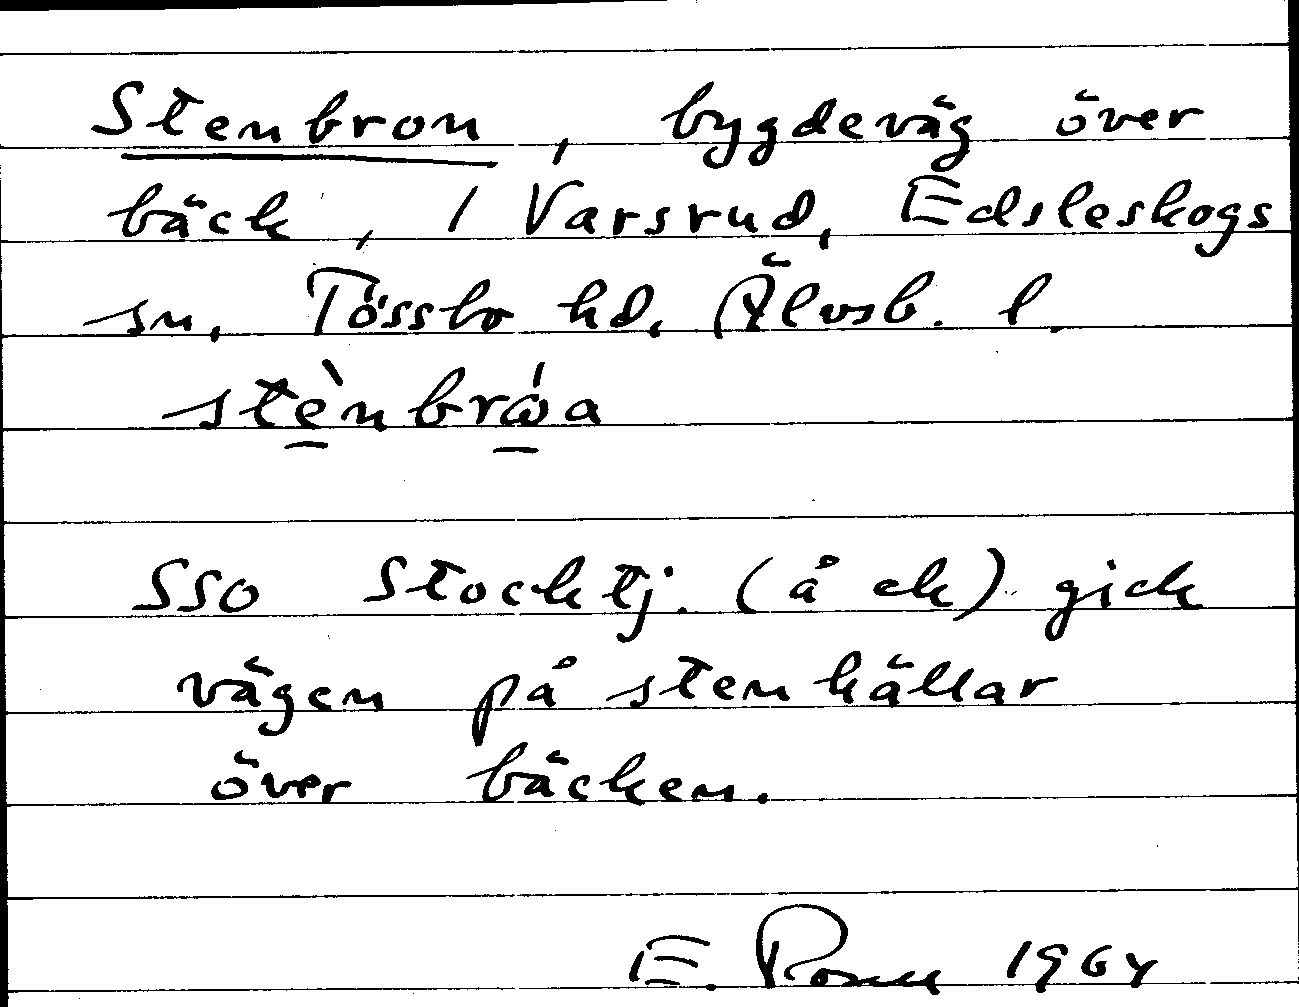 Stenbron, bygdeväg över
bäck, / Varsrud, Edsleskogs
sn, Tössbo hd, Älvsb. l.
stè̱nbrώ̱a
SSO Stocktj. (å ek) gick
vägen på stenhällar
över bäcken.
E. 1964